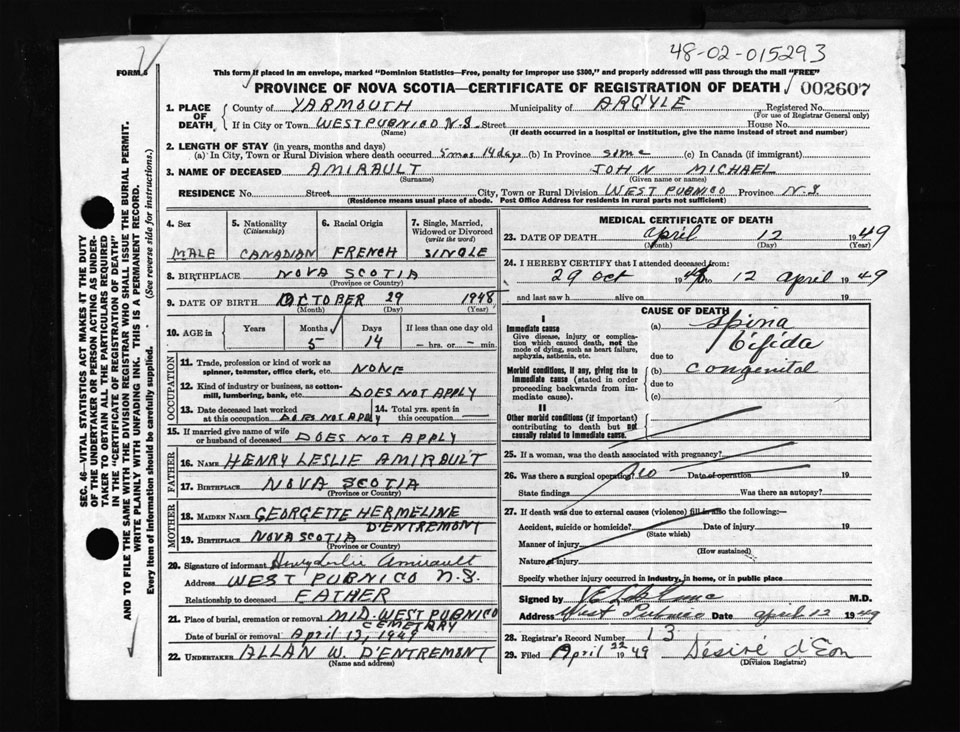 48-02-015293
FORM 6
This form if placed in an envelope, marked "Dominion Statistics—Free, penalty for improper use $300," and properly addressed will pass through the mail "FREE"
PROVINCE OF NOVA SCOTIA—CERTIFICATE OF REGISTRATION OF DEATH 002607
1. PLACE OF DEATH County of YARMOUTH Municipality of ARGYLE Registered No.
(For use of Registrar General only)
If in City or Town WEST PUBNICO N.S. Street House No.
(Name) (If death occurred in a hospital or institution, give the name instead of street and number)
2. LENGTH OF STAY (in years, months and days)
(a) In City, Town or Rural Division where death occurred 5 mos 14 days (b) In Province same (c) In Canada (if immigrant)
3. NAME OF DECEASED AMIRAULT JOHN MICHAEL
(Surname) (Given name or names)
RESIDENCE No. Street City, Town or Rural Division WEST PUBNICO Province N.S
(Residence means usual place of abode. Post Office Address for residents in rural parts not sufficient)
4. Sex 5. Nationality (Citizenship) 6. Racial Origin 7. Single, Married, Widowed or Divorced (write the word)
MALE CANADIAN FRENCH SINGLE
8. BIRTHPLACE NOVA SCOTIA
(Province or Country)
9. DATE OF BIRTH OCTOBER 29 1948
(Month) (Day) (Year)
10. AGE in Years Months Days If less than one day old
5 14 — hrs. or — min.
OCCUPATION
11. Trade, profession or kind of work as spinner, teamster, office clerk, etc. NONE
12. Kind of industry or business, as cotton-mill, lumbering, bank, etc. DOES NOT APPLY
13. Date deceased last worked at this occupation DOES NOT APPLY 14. Total yrs. spent in this occupation —
15. If married give name of wife or husband of deceased DOES NOT APPLY
FATHER
16. NAME HENRY LESLIE AMIRAULT
17. BIRTHPLACE NOVA SCOTIA
(Province or Country)
MOTHER
18. MAIDEN NAME GEORGETTE HERMELINE
D'ENTREMONT
19. BIRTHPLACE NOVA SCOTIA
(Province or Country)
20. Signature of informant Henry Leslie Amirault
Address WEST PUBNICO N.S.
Relationship to deceased FATHER
21. Place of burial, cremation or removal MID. WEST PUBNICO
CEMETARY
Date of burial or removal April 12, 1949
22. UNDERTAKER ALLAN W. D'ENTREMONT
(Name and address)
MEDICAL CERTIFICATE OF DEATH
23. DATE OF DEATH April 12 1949
(Month) (Day) (Year)
24. I HEREBY CERTIFY that I attended deceased from:
29 Oct 1948 to 12 April 1949
and last saw h alive on 19
CAUSE OF DEATH
I
Immediate cause
Give disease, injury or complication which caused death, not the mode of dying, such as heart failure, asphyxia, asthenia, etc.
(a) Spina
Bifida
due to
Morbid conditions, if any, giving rise to immediate cause (stated in order proceeding backwards from immediate cause).
(b) Congenital
due to
(c)
II
Other morbid conditions (if important) contributing to death but not causally related to immediate cause.
25. If a woman, was the death associated with pregnancy?
26. Was there a surgical operation? No Date of operation 19
State findings Was there an autopsy?
27. If death was due to external causes (violence) fill in also the following:—
Accident, suicide or homicide? Date of injury 19
(State which)
Manner of injury
(How sustained)
Nature of injury
Specify whether injury occurred in industry, in home, or in public place
Signed by M.D.
Address West Pubnico Date April 12 1949
28. Registrar's Record Number 13
29. Filed April 22 1949 Désiré d'Eon
(Division Registrar)
SEC. 46—VITAL STATISTICS ACT MAKES IT THE DUTY
OF THE UNDERTAKER OR PERSON ACTING AS UNDER-
TAKER TO OBTAIN ALL THE PARTICULARS REQUIRED
IN THE "CERTIFICATE OF REGISTRATION OF DEATH"
AND TO FILE THE SAME WITH THE DIVISION REGISTRAR WHO SHALL ISSUE THE BURIAL PERMIT.
WRITE PLAINLY WITH UNFADING INK. THIS IS A PERMANENT RECORD.
Every item of information should be carefully supplied. (See reverse side for instructions.)